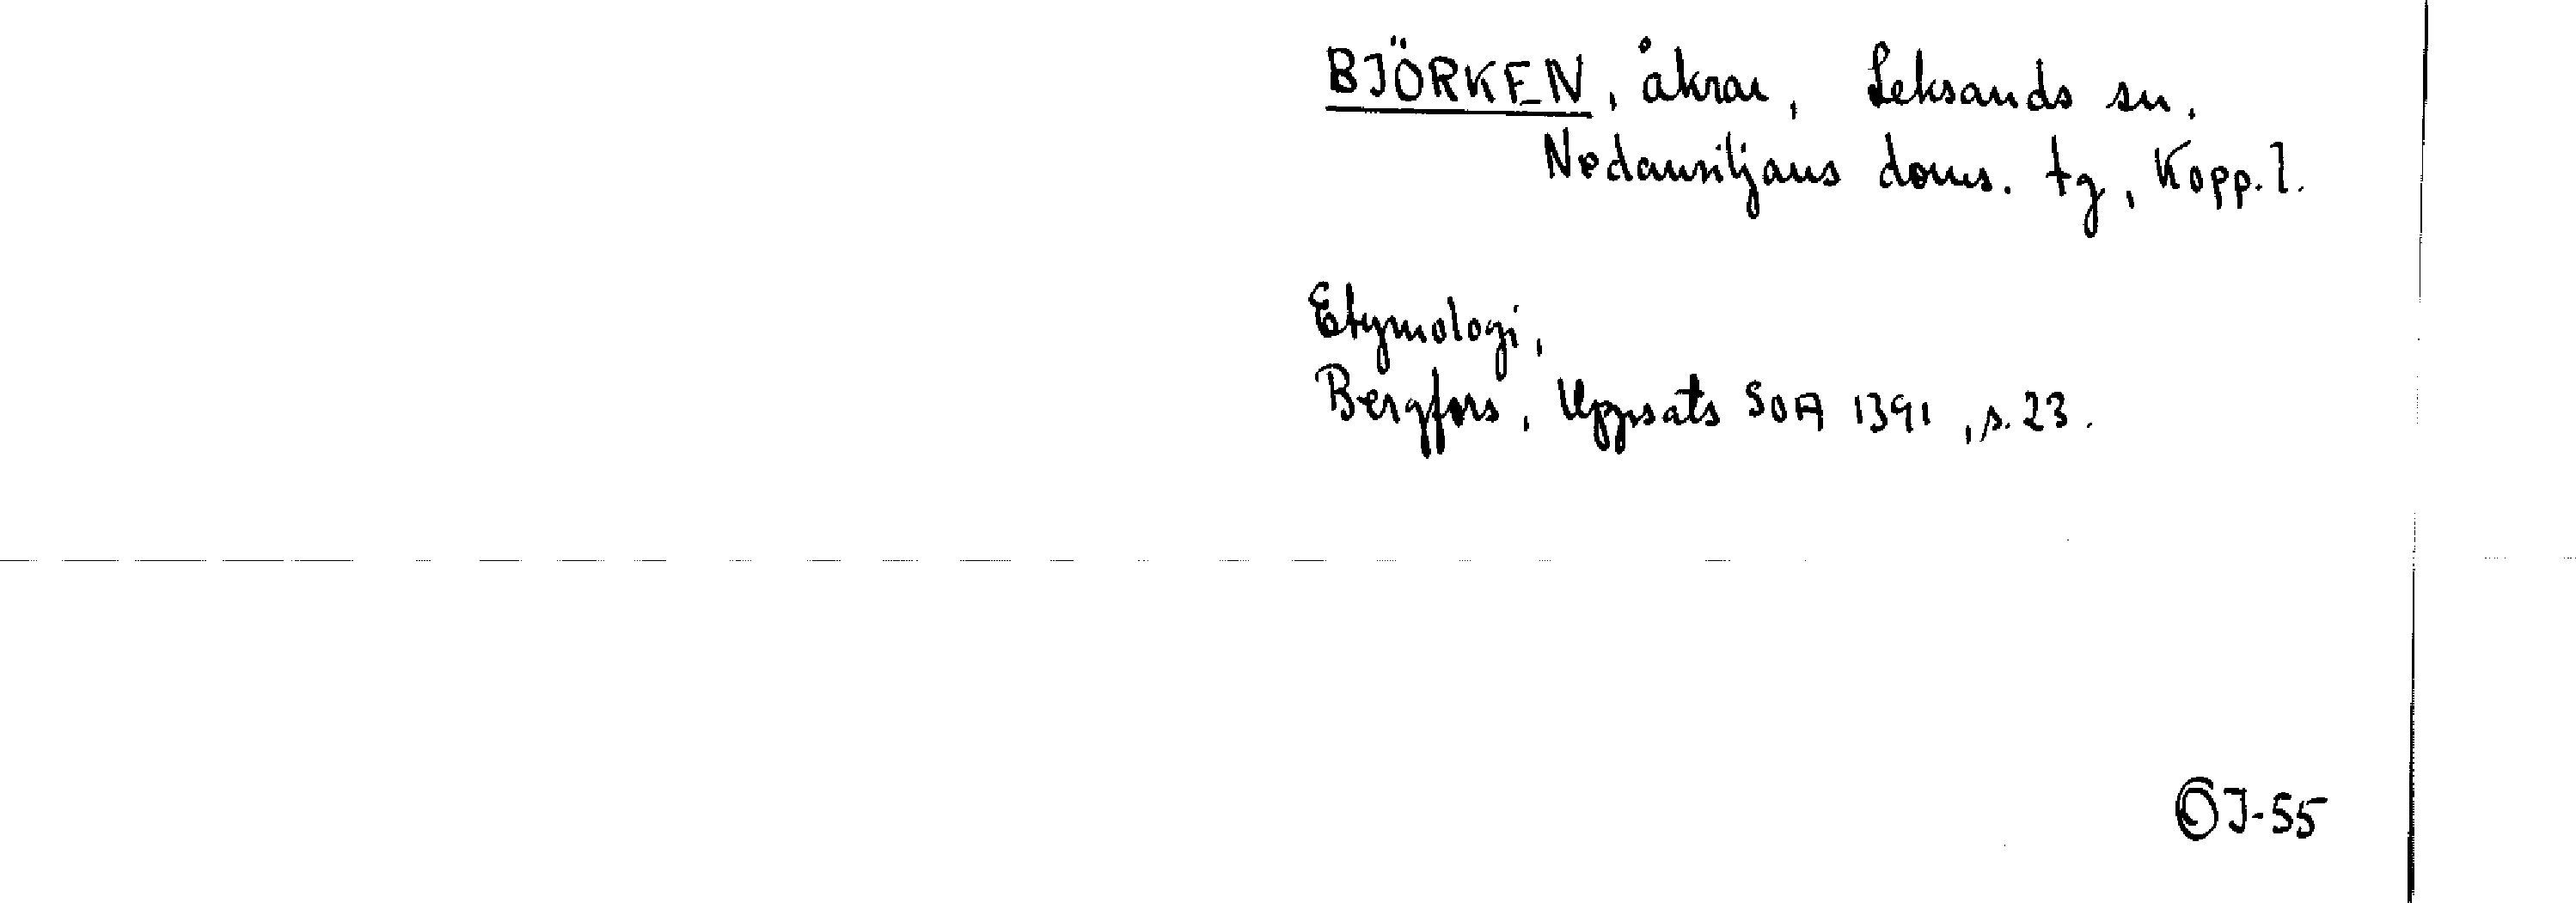 BJÖRKEN, åkrar, Leksands sn,
Nedansiljans doms. tg, Kopp. l.
Etymologi,
Bergfors, Uppsats SOA 1391, s. 23.
OJ-55